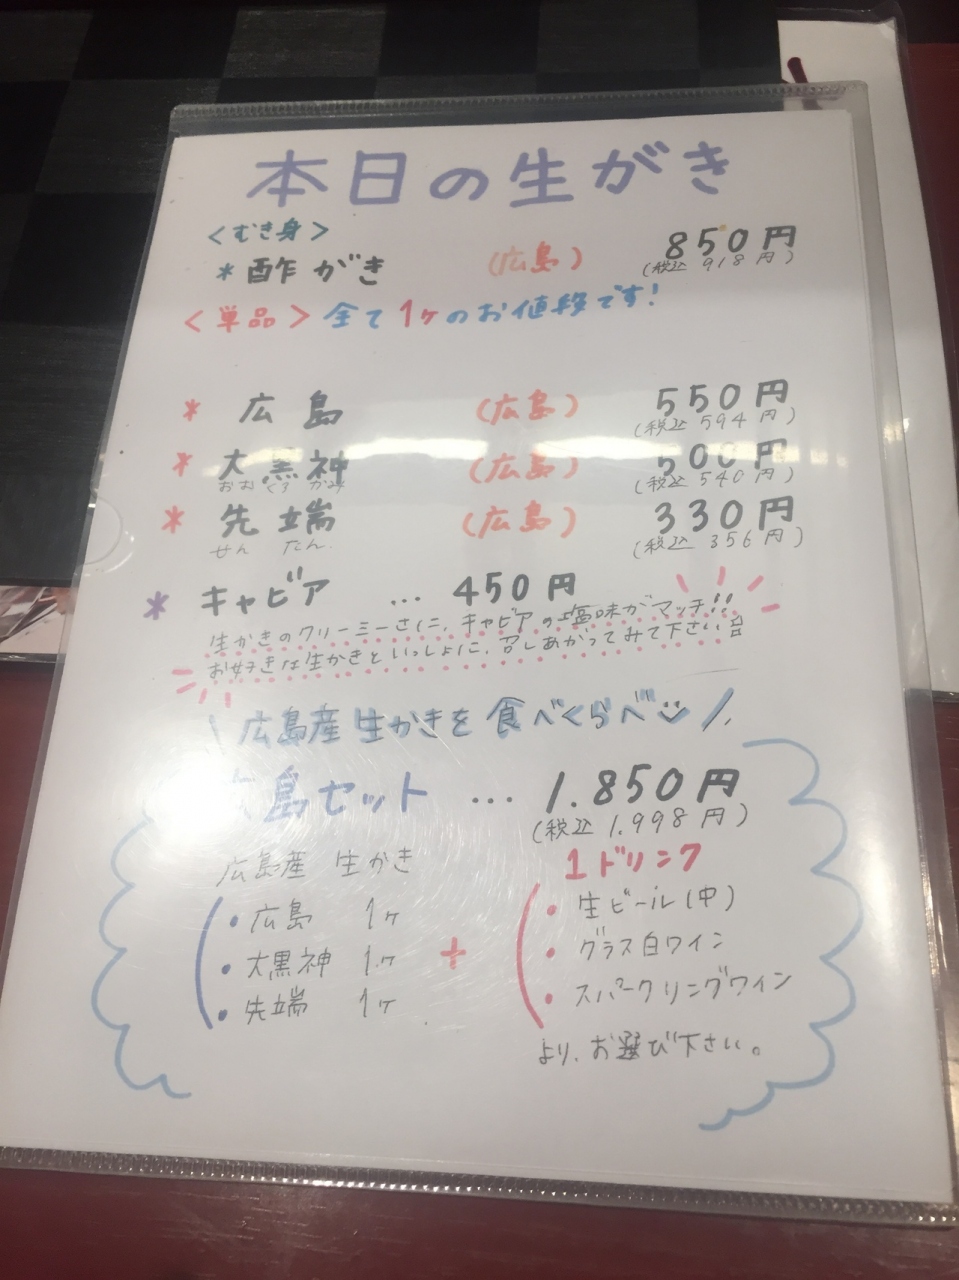 本日の生がき
＜むき身＞
＊酢がき （広島） 850円
（税込 918円）
＜単品＞全て1ヶのお値段です！
＊広島 （広島） 550円
（税込 594円）
＊大黒神 （広島） 500円
おおくろかみ （税込 540円）
＊先端 （広島） 330円
せんたん （税込 356円）
＊キャビア … 450円
生かきのクリーミーさに、キャビアの塩味がマッチ!!
お好きな生かきといっしょに、召しあがってみて下さい
\ 広島産生かきを食べくらべ /
広島セット … 1.850円
（税込 1.998円）
広島産 生かき 1ドリンク
・広島 1ヶ ・生ビール（中）
・大黒神 1ヶ + ・グラス白ワイン
・先端 1ヶ ・スパークリングワイン
より、お選び下さい。